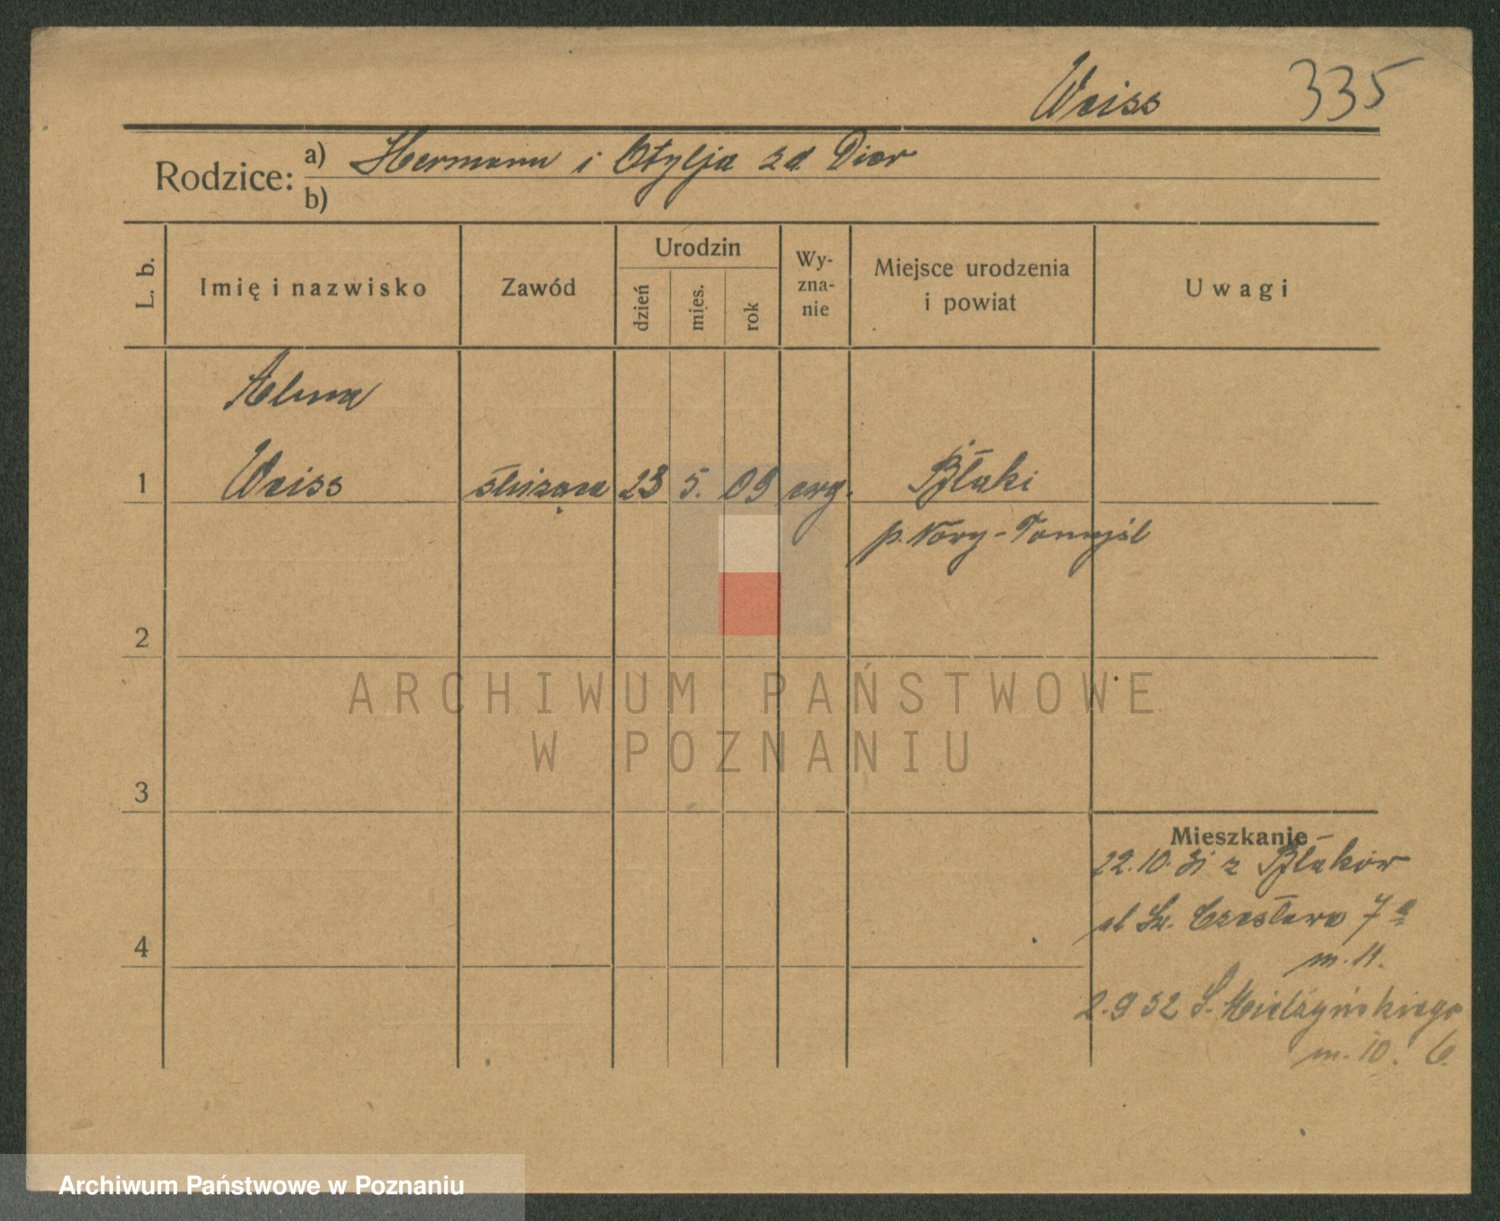 Weiss 335
Rodzice: a) Hermann i Otylja zd. Dier
b)
L. b. Imię i nazwisko Zawód Urodzin dzień mies. rok Wy-zna-nie Miejsce urodzenia i powiat Uwagi
Alma
1 Weiss służąca 23 5. 09 ewg. Błaki
p. Nowy-Tomyśl
2
ARCHIWUM PAŃSTWOWE
W POZNANIU
3
Mieszkanie
22.10.31 z
ul Św. Czesława 7a
m. 11.
2.9 32 S. Mielżyńskiego
m. 10. 6.
4
Archiwum Państwowe w Poznaniu